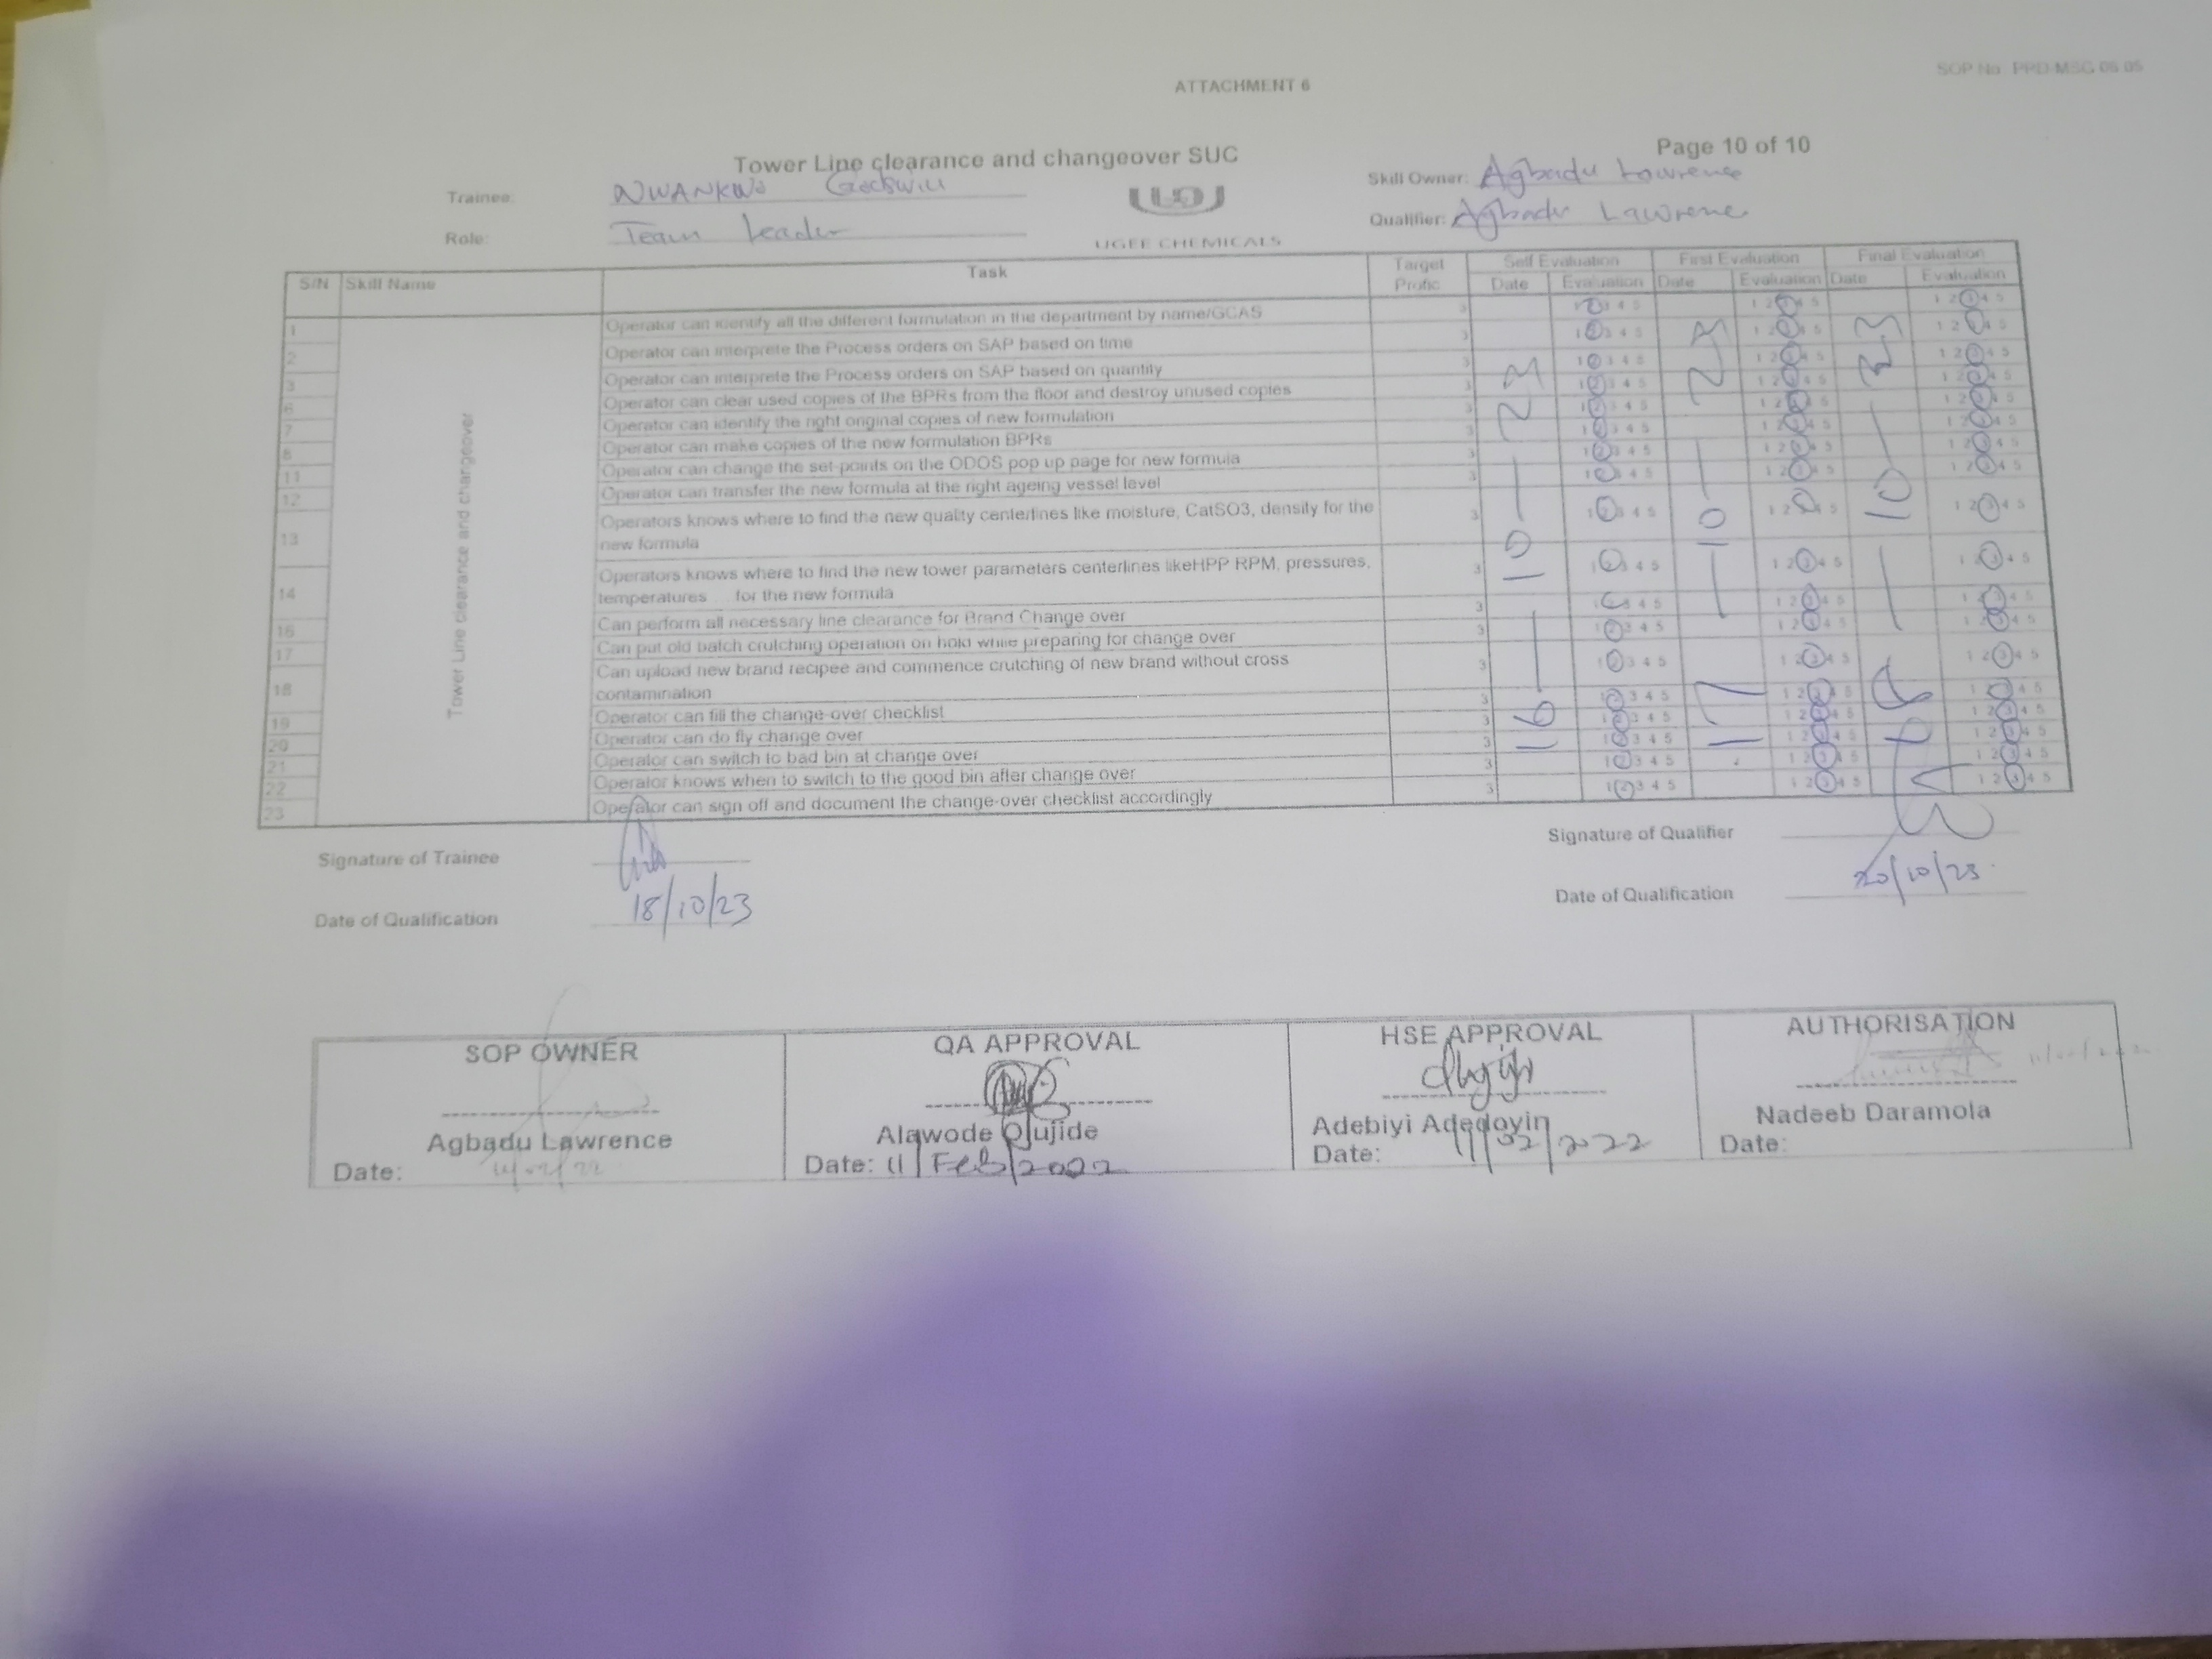 SOP No: PRD-MSG 06.05
ATTACHMENT 6
Page 10 of 10
Tower Line clearance and changeover SUC
Trainee: NWANKWO Godswill
Skill Owner: Agbadu Lawrence
Role: Team Leader
Qualifier: Agbadu Lawrence
UGEE CHEMICALS
S/N Skill Name Task Target Profic Self Evaluation First Evaluation Final Evaluation
Date Evaluation Date Evaluation Date Evaluation
Tower Line clearance and changeover
1 Operator can identify all the different formulation in the department by name/GCAS 3 1 2 3 4 5 1 2 3 4 5 1 2 3 4 5
2 Operator can interprete the Process orders on SAP based on time 3 1 2 3 4 5 1 2 3 4 5 1 2 3 4 5
3 Operator can interprete the Process orders on SAP based on quantity 3 1 2 3 4 5 1 2 3 4 5 1 2 3 4 5
6 Operator can clear used copies of the BPRs from the floor and destroy unused copies 3 1 2 3 4 5 1 2 3 4 5 1 2 3 4 5
7 Operator can identify the right original copies of new formulation 3 1 2 3 4 5 1 2 3 4 5 1 2 3 4 5
8 Operator can make copies of the new formulation BPRs 3 1 2 3 4 5 1 2 3 4 5 1 2 3 4 5
11 Operator can change the set-points on the ODOS pop up page for new formula 3 1 2 3 4 5 1 2 3 4 5 1 2 3 4 5
12 Operator can transfer the new formula at the right ageing vessel level 3 1 2 3 4 5 1 2 3 4 5 1 2 3 4 5
13 Operators knows where to find the new quality centerlines like moisture, CatSO3, density for the
new formula 3 1 2 3 4 5 1 2 3 4 5 1 2 3 4 5
14 Operators knows where to find the new tower parameters centerlines likeHPP RPM, pressures,
temperatures ... for the new formula 3 1 2 3 4 5 1 2 3 4 5 1 2 3 4 5
16 Can perform all necessary line clearance for Brand Change over 3 1 2 3 4 5 1 2 3 4 5 1 2 3 4 5
17 Can put old batch crutching operation on hold while preparing for change over 3 1 2 3 4 5 1 2 3 4 5 1 2 3 4 5
18 Can upload new brand recipee and commence crutching of new brand without cross
contamination 3 1 2 3 4 5 1 2 3 4 5 1 2 3 4 5
19 Operator can fill the change-over checklist 3 1 2 3 4 5 1 2 3 4 5 1 2 3 4 5
20 Operator can do fly change over 3 1 2 3 4 5 1 2 3 4 5 1 2 3 4 5
21 Operator can switch to bad bin at change over 3 1 2 3 4 5 1 2 3 4 5 1 2 3 4 5
22 Operator knows when to switch to the good bin after change over 3 1 2 3 4 5 1 2 3 4 5 1 2 3 4 5
23 Operator can sign off and document the change-over checklist accordingly 3 1 2 3 4 5 1 2 3 4 5 1 2 3 4 5
16/10/23
17/10/23
Signature of Trainee
Signature of Qualifier
Date of Qualification 18/10/23
Date of Qualification 20/10/23
SOP OWNER
Agbadu Lawrence
Date: 11/02/22
QA APPROVAL
Alawode Olujide
Date: 11/Feb/2022
HSE APPROVAL
Adebiyi Adedoyin
Date: 11/02/2022
AUTHORISATION
Nadeeb Daramola
Date: